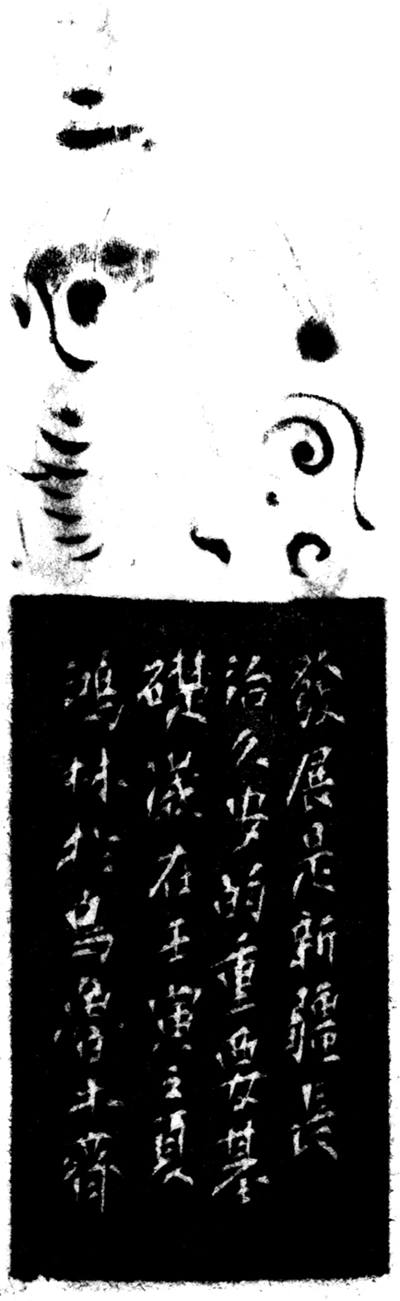 發展是新疆長
治久安的重要基
礎歲在壬寅之夏
鴻林於烏魯木齊